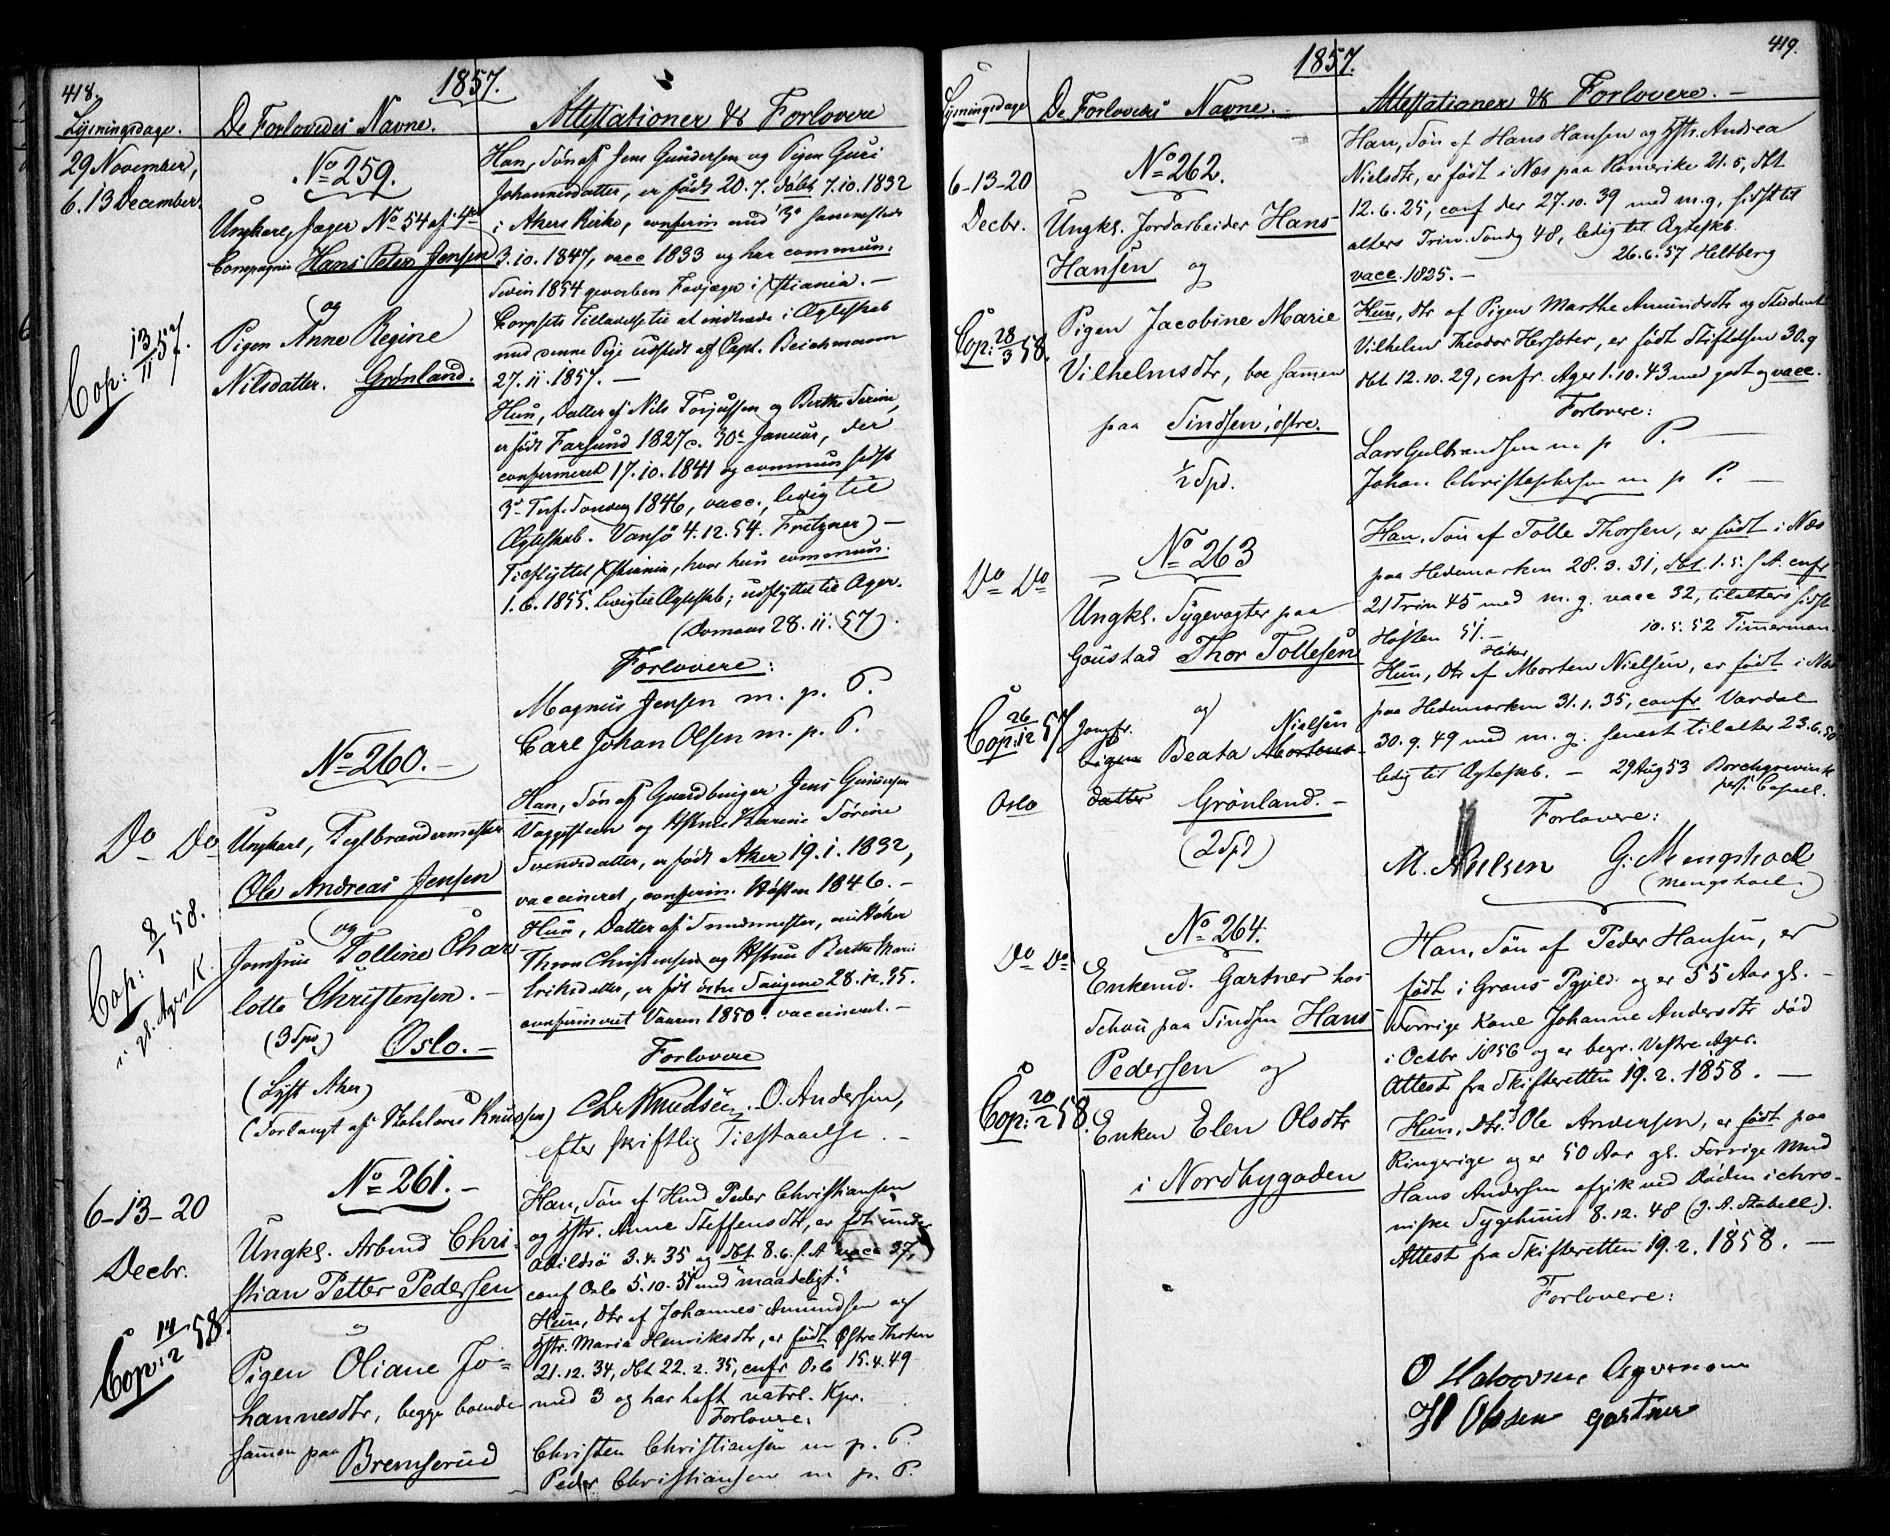 418.
1857.
Lysningsdage.
De Forlovedes Navne.
Attestationer & Forlovere
29 November,
6. 13 December.
No 259.
Ungkarl, Jæger No 54 af 4de
Compagnie Hans Peter Jensen
og
Pigen Anne Regine
Nilsdatter. Grønland.
Cop: 13/11 57.
Han, Søn af Jens Gundersen og Pigen Guri
Johannesdatter, er født 20.7. døbt 7.10.1832
i Akers Kirke, confirm. med 3
3.10.1847, vacc 1833 og har commun:
1854 i Xstiania. —
Corpsets Tilladelse til at indtræde i Ægteskab
med denne Pige udstedt af Capt. Beichmann
27.11.1857. —
Hun, Datter af Nils Torjussen og Berthe Serine,
er født Farsund 1827 30te Januar, der
confirmeret 17.10.1841 og commun sidst
Søndag 1846, vacc., ledig til
Ægteskab. Vansø 4.12.54. Fritzner) —
Tilflyttet Xstiania, hvor hun commun:
1.6.1855. ledig til Ægteskab; udflyttet til Ager.
28.11.57).
Forlovere:
Magnus Jensen m. p. P.
Carl Johan Olsen m. p. P.
Do Do
No 260. —
Ungkarl, Teglbrændermester
Ole Andreas Jensen
og
Jomfrue Tolline Char
lotte Christensen. —
(3 Spd) Oslo. —
(Lyst Aker)
(Forlangt af Knudsen)
Cop: 8/1 58.
i Ager K.
Han, Søn af Gaardbruger Jens Gundersen
og Hustrue Karine Sørine
Svensdatter, er født Aker 19.1.1832,
vaccineret, confirm. Høsten 1846. —
Hun, Datter af Smedmester,
Thron Christensen og Hstrue Berthe Marie
Eriksdatter, er født 28.12.35.
confirmeret Vaaren 1850. vaccineret. —
Forlovere
Chr Knudsen. O. Andersen,
efter skriftlig Tilstaaelse. —
6-13-20
Decbr.
No 261. —
Ungkl. Arbmd Chri-
stian Petter Pedersen
og
Pigen Oliane Jo-
hannesdtr, begge boende
sammen paa Bremserud
Cop: 14/2 58.
Han, Søn af Hmd Peder Christiansen
og Hstr. Anne Steffensdtr, er født under
Abildsø 3.4.35 og dbt 8.6. s. A vacc 37,
conf Oslo 5.10.51 med "maadeligt".
Hun, Dtr af Johannes Amundsen og
Hstr. Maria Henriksdtr, er født Østre Thoten
21.12.34, dbt 22.2.35, cnfr Oslo 15.4.49
med 3 og har haft natrl. Kpr.
Forlovere:
Christen Christiansen m p. P.
Peder Christiansen m p. P.
419.
1857.
Lysningsdage
De Forlovedes Navne. —
Attestationer & Forlovere. —
6-13-20
Decbr.
No 262.
Ungkl. Jordarbeider Hans
Hansen og
Pigen Jacobine Marie
Vilhelmsdtr, boe sammen
paa Sindsen, østre.
1/2 Spd.
Cop: 28/3 58.
Han, Søn af Hans Hansen og Hstr. Andrea
Nielsdtr, er født i Næs paa Romerike 21.5, dbt
12.6.25, conf der 27.10.39 med m. g, sidst til
alters Trin. Søndg 48, ledig til Ægteskb.
26.6.57 Heltberg
vacc. 1825. —
Hun, dtr af Pigen Marthe Amundsdtr og Student
Vilhelm Theodor Hersæter, er født Stiftelsen 30.9
dbt 12.10.29, cnfr. Ager 1.10.43 med godt og vacc.
Forlovere:
Lars Gulbrandsen m p P. —
Johan Christophersen m p P. —
Do Do
No 263
Ungkl. Sygevogter paa
Goustad Thor Tollesen
og
Jomfr. Nielsen
Pigen Beata Mortens-
datter Grönland. —
(2 Spd)
Cop: 26/12 57
Oslo
Han, Søn af Tolle Thorsen, er født i Næs
paa Hedemarken 28.3.31, dbt. 1.5. s. A. cnfr
21 Trin 45 med m. g. vacc 32, til alters sidst
Høsten 51. — 10.5.52 Timmerman.
Hun, Dtr af Morten Nielsen, er født i Næs
paa Hedemarken 31.1.35, confr Vardal
30.9.49 med m. g. senest til alter 23.6.50
ledig til Ægteskb. — 29 Aug 53 Borchgrevink
pers. Capel.
Forlovere:
M. Nielsen G. Mengshoel
(Mengshoel)
Do Do
No 264.
Enkemd. Gartner hos
Schou paa Sindsen Hans
Pedersen og
Enken Elen Olsdtr
i Nordbygaden
Cop: 20/2 58.
Han, Søn af Peder Hansen, er
født i Grans Pgjeld og er 55 Aar gl. —
Forrige Kone Johanne Andersdtr død
i Octbr 1856 og er begr. Vestre Ager.
Attest fra Skifteretten 19.2.1858. —
Hun, Dtr. Ole Andersen, er født paa
Ringerige og er 50 Aar gl. Forrige Mand
Hans Andersen afgik ved Døden i chro-
niske Sygehuus 8.12.48 (J. A. Stabell).
Attest fra Skifteretten 19.2.1858. —
Forlovere:
O Halvorsen,
H Olsen gartner